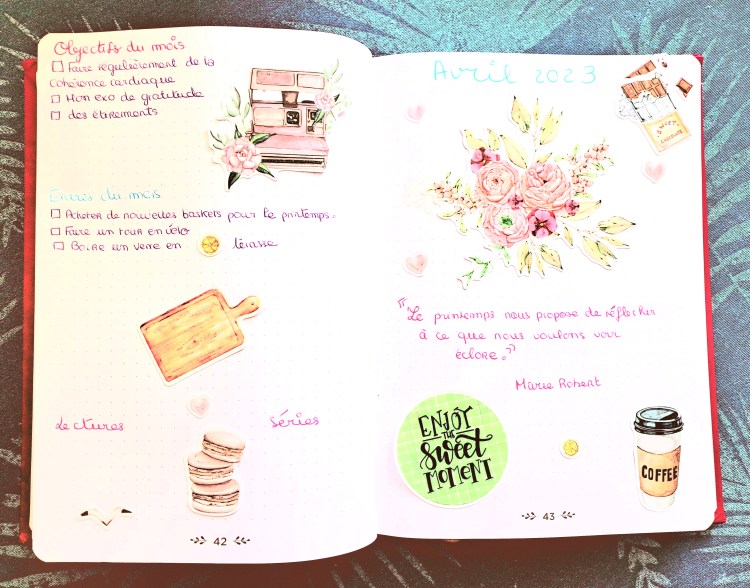 Objectifs du mois
□ Faire régulièrement de la
cohérence cardiaque
□ Mon exo de gratitude
□ des étirements
Envies du mois
□ Acheter de nouvelles baskets pour le printemps.
□ Faire un tour en vélo
□ Boire un verre en térasse
Lectures
Séries
42
Avril 2023
SWEET
CHOCOLATE
"Le printemps nous propose de réfléchir
à ce que nous voulons voir
éclore."
Marie Robert
ENJOY
THE
Sweet
MOMENT
COFFEE
43